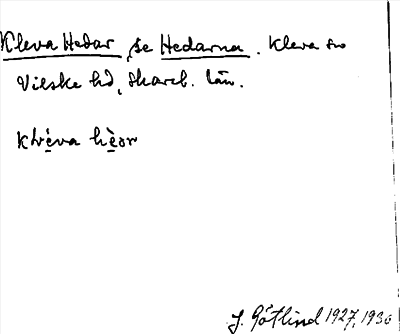 Kleva Hedar, se Hedarna. Kleva sn
Vilske hd, Skarab. län.
klèva hèar
J. Götlind 1927, 1930